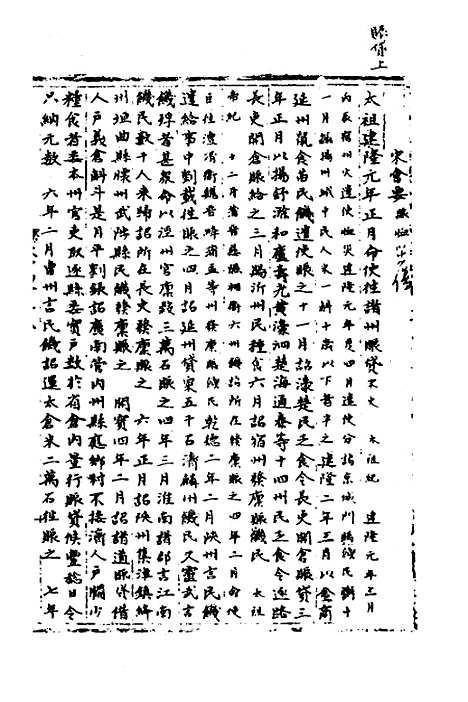 賑貸上
宋會要
太祖建隆元年正月命使往諸州賑貸 太祖紀 建隆元年三月
內辰宿州火遣使賑災 建隆元年 四月遣使分詣京城門賜饑民粥十
一月 揚州城中民人米一斛十歲以下者半之 建隆二年三月以金商
延州饑食苗民饑遣使賑之十一月詔濠楚民乏食令長吏開倉賑貸三
年正月以揚舒滁和廬壽光黃濠泗楚海通泰等十四州民乏食令逐路
長吏開倉賑給之三月賜沂州民種食六月詔宿州發廩賑饑民 太祖
本紀 十二月蒲晉慈隰相衛六州饑詔所在發廩賑之四年二月命使
臣往澶滑衛魏晉絳蒲孟等州發廩賑饑民乾德二年二月陝州言民饑
遣給事中劉載往賑之四月詔延州貸粟五千石濟麟州饑民又靈武言
饑殍者甚眾命以涇州官廩穀三萬石賑之四年三月淮南諸郡言江南
饑民數千人來歸詔所在長吏發廩賑之 六年正月詔陝州集津鎮絳
州垣曲縣懷州武陟縣民饑發廩賑之 開寶四年二月詔諸道賑貸借
人戶義倉斛斗是月平劉鋹詔廣南管內州縣鄉村不接濟人戶闕少
糧食者委本州官吏取逐縣委實戶數於有倉內量行賑貸候豐稔日令
只納元數 六年二月曹州言民饑詔運太倉米二萬石往賑之 七年